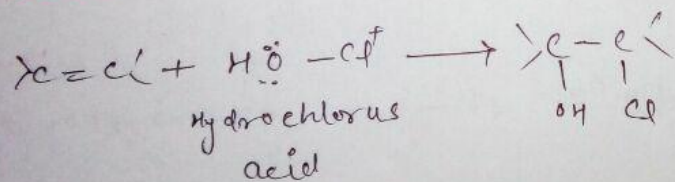 >C = C< + HÖ̤ – Cl⁺ ⟶ >C – C<
OH Cl
Hydrochlorus
acid